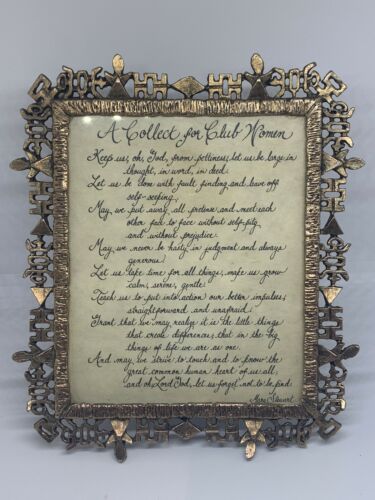 A Collect for Club Women
Keep us, oh, God, from pettiness; let us be large in
thought, in word, in deed.
Let us be done with fault finding and leave off
self-seeking.
May we put away all pretense and meet each
other face to face without self-pity
and without prejudice.
May we never be hasty in judgment and always
generous.
Let us take time for all things; make us grow
calm, serene, gentle.
Teach us to put into action our better impulses;
straightforward and unafraid.
Grant that we may realize it is the little things
that create differences; that in the big
things of life we are as one.
And may we strive to touch and to know the
great common human heart of us all;
and oh, Lord God, let us forget not to be kind.
Mary Stewart